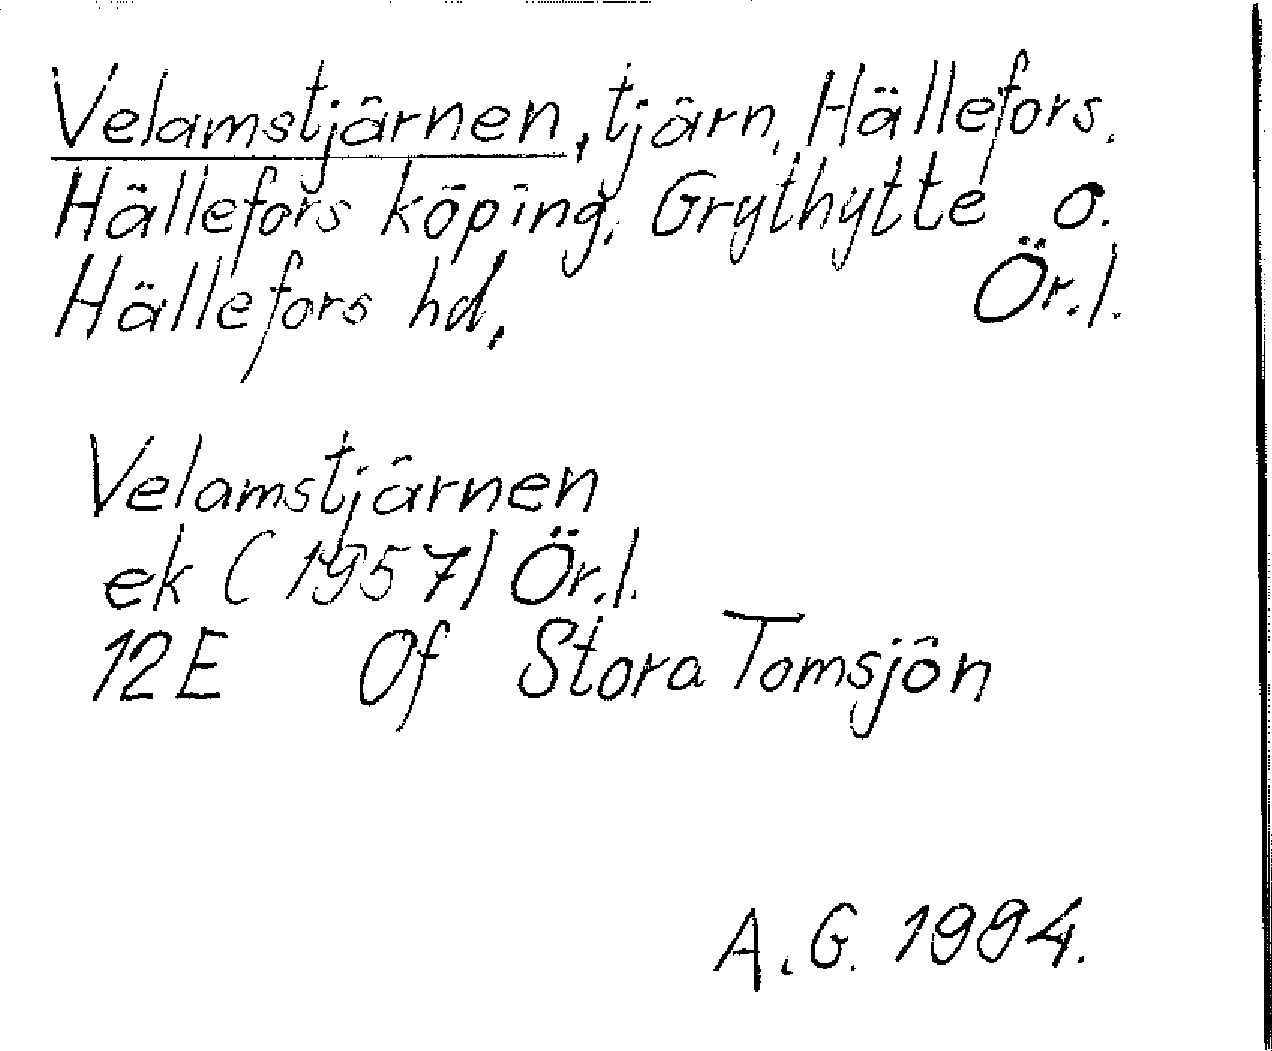 Velamstjärnen, tjärn, Hällefors.
Hällefors köping, Grythytte o.
Hällefors hd, Ör.l.
Velamstjärnen
ek (1957) Ör.l.
12E 0f Stora Tomsjön
A.G. 1994.